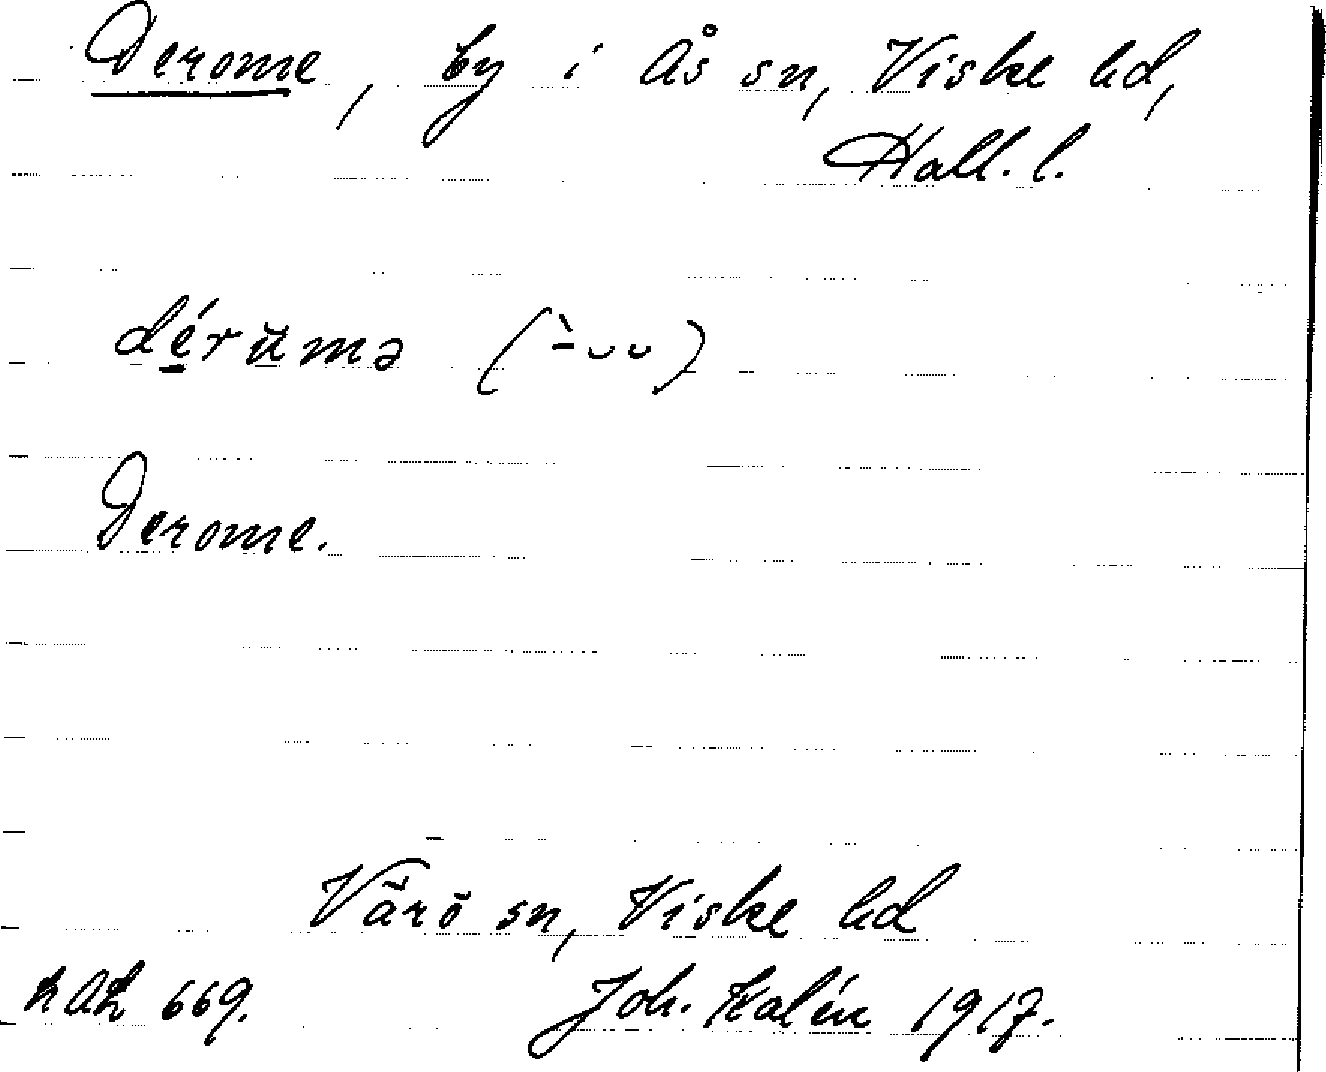 Derome, by i Ås sn, Viske hd,
Hall. l.
dérŭmə (-̀ ᴗᴗ)
Derome.
Värö sn, Viske hd
LAL 669. Joh. Kalén 1917.